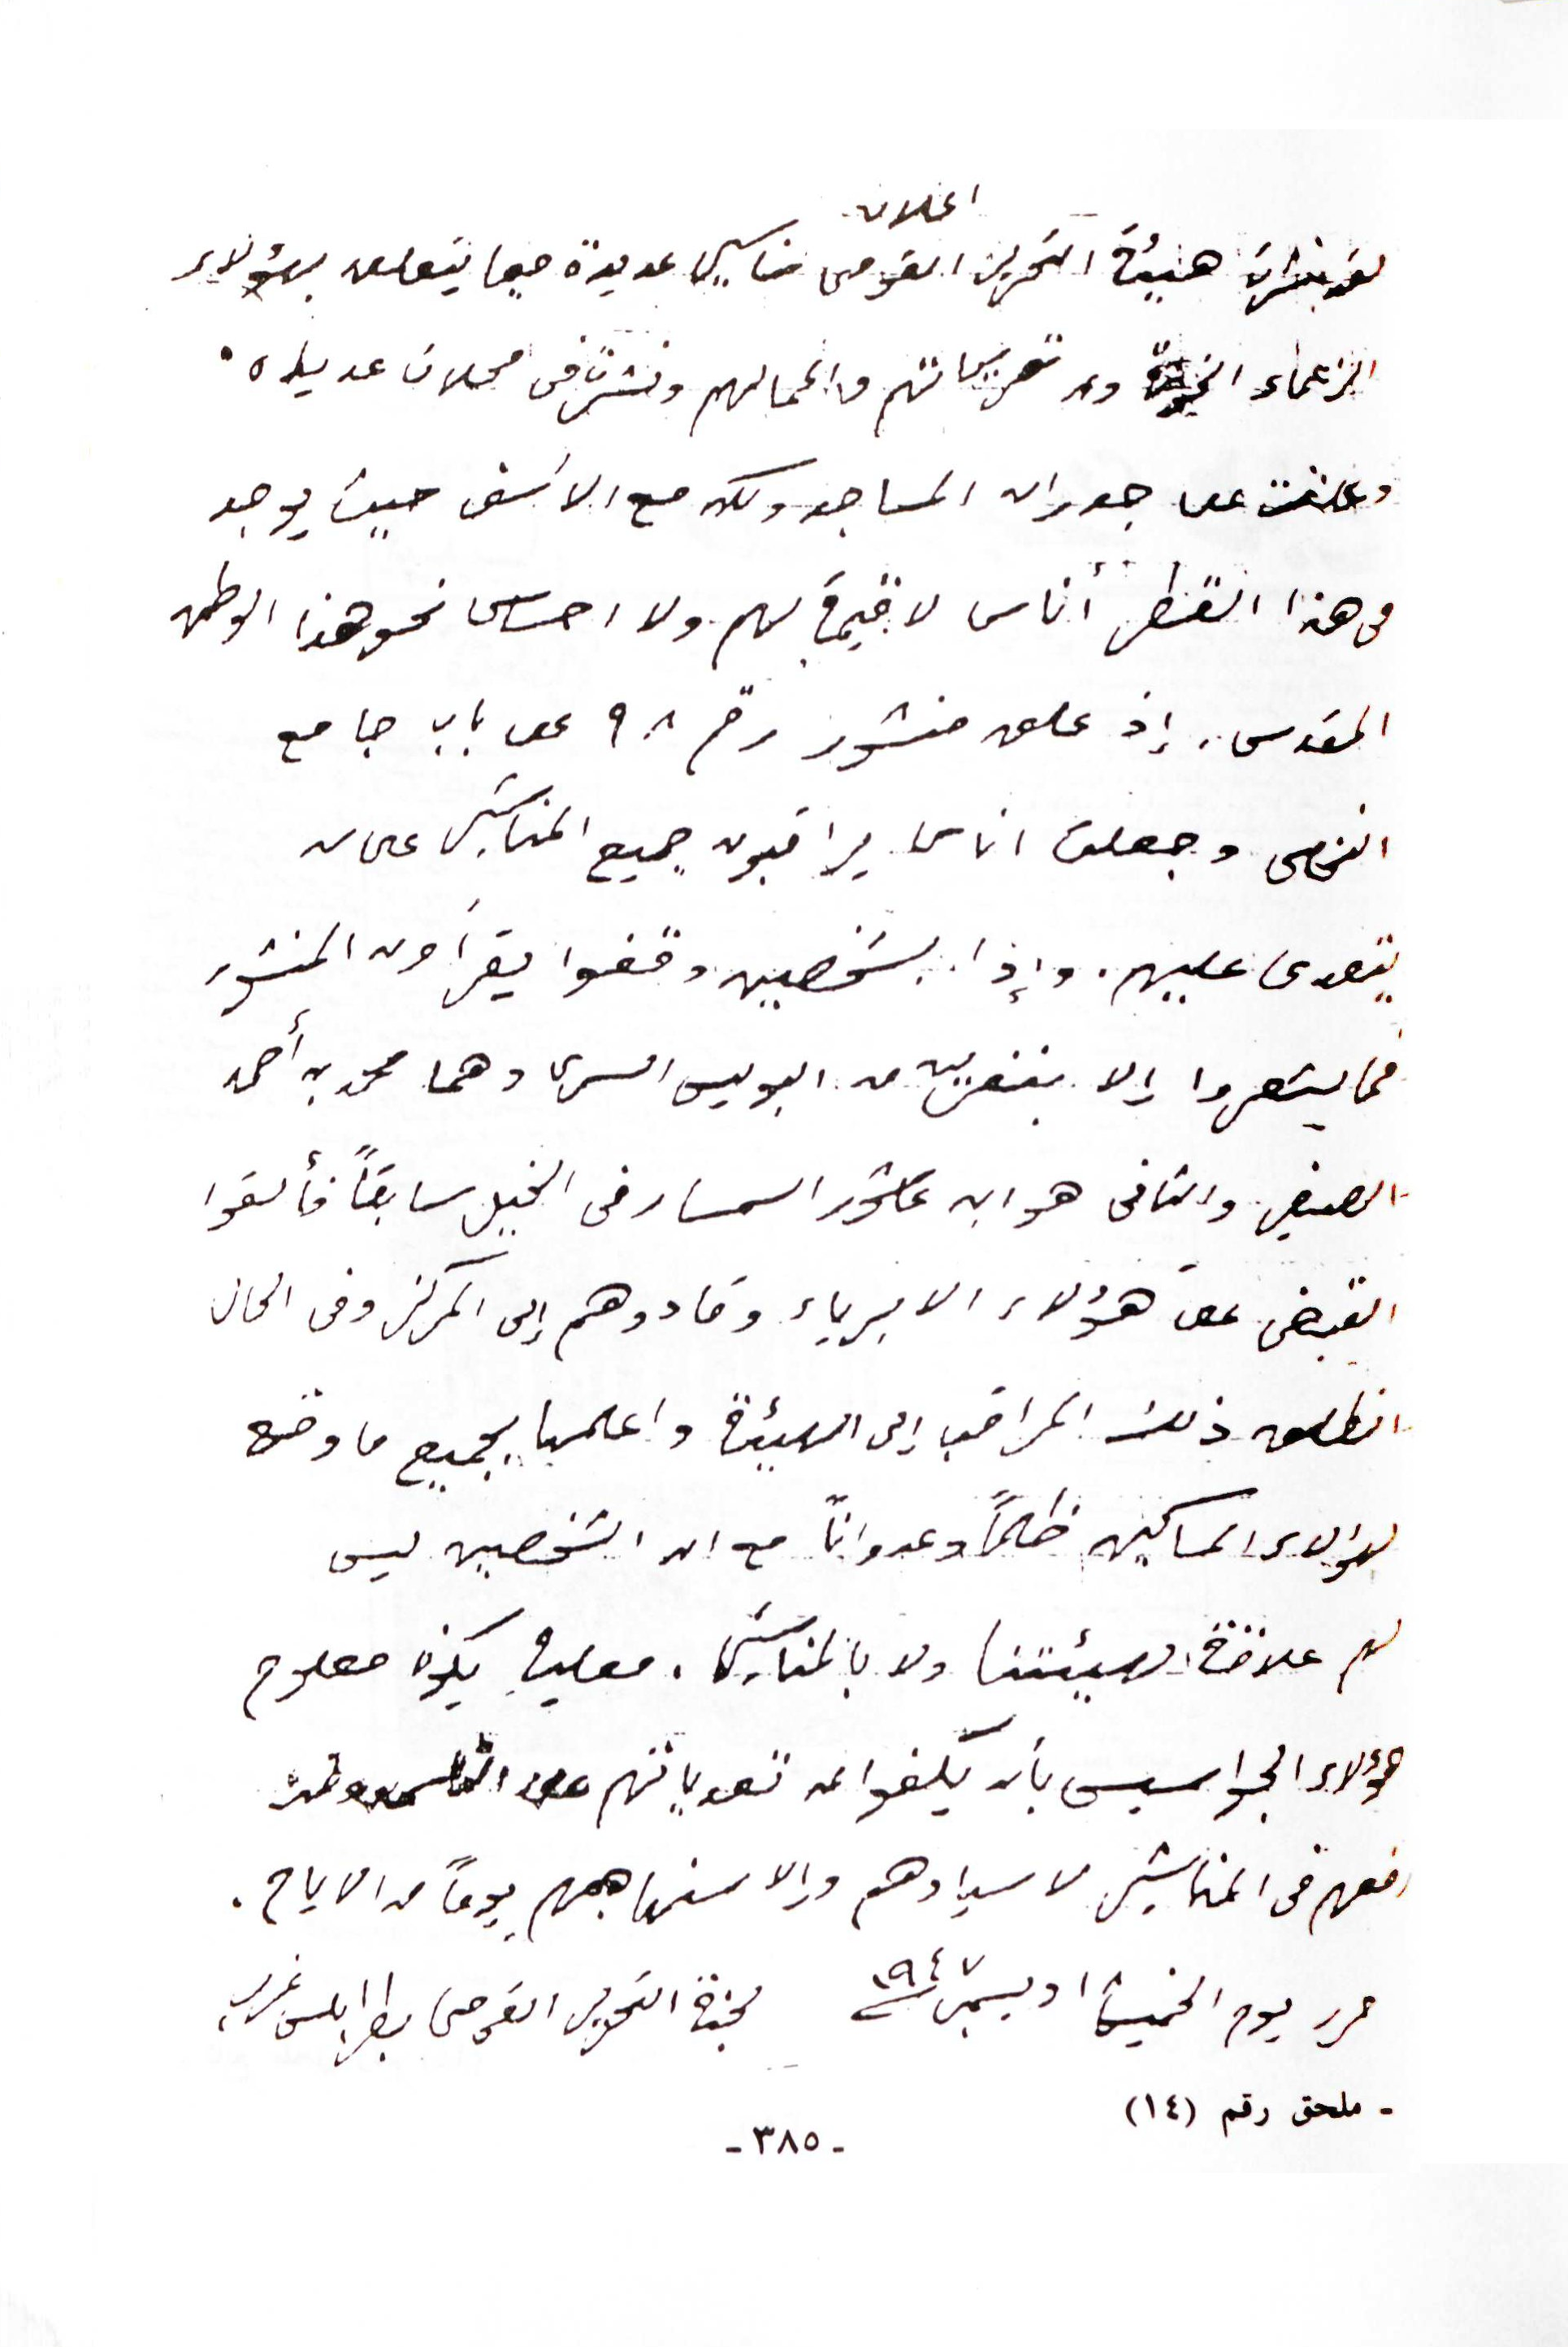 اعلان
لقد نشرت هيئة التحرير القومى مناشير عديدة فيما يتعلق بهؤلاء
الزعماء الخونة وعن تصريحاتهم واعمالهم ونشرت فى محلات عديده.
وعلقت على جدران المساجد ولكن مع الأسف حيث يوجد
فى هذا القطر أناس لا قيمة لهم ولا احساس نحو هذا الوطن
المقدس، إذ علق منشور رقم ٩٨ على باب جامع
النخلى وجعلت اناس يراقبون جميع المناشير على من
يتعدى عليهم. وإذا بشخصين وقفوا يقرأون المنشور
فما يشعروا إلا بنفرين من البوليس السرى وهما محمد بن أحمد
الصغير والثانى هو ابن عاشور السمسار فى الخيل سابقاً فألقوا
القبض على هؤلاء الابرياء وقادوهم إلى المركز وفى الحال
انطلق ذلك المراقب إلى الهيئة واعلمها بجميع ما وقع
لهؤلاء المساكين ظلماً وعدواناً مع ان الشخصين ليس
لهم علاقة بهيئتنا ولا بالمناشير. فعليه يكون معلوم
هؤلاء الجواسيس بأن يكفوا عن تعدياتهم على الناس وعن
رفعهم فى المناشير لاسيادهم وإلا سنهاجمهم يوماً من الايام.
حرر يوم الخميس ١ ديسمبر ١٩٤٧ لجنة التحرير القومى بطرابلس غرب
- ملحق رقم (١٤)
- ٣٨٥ -